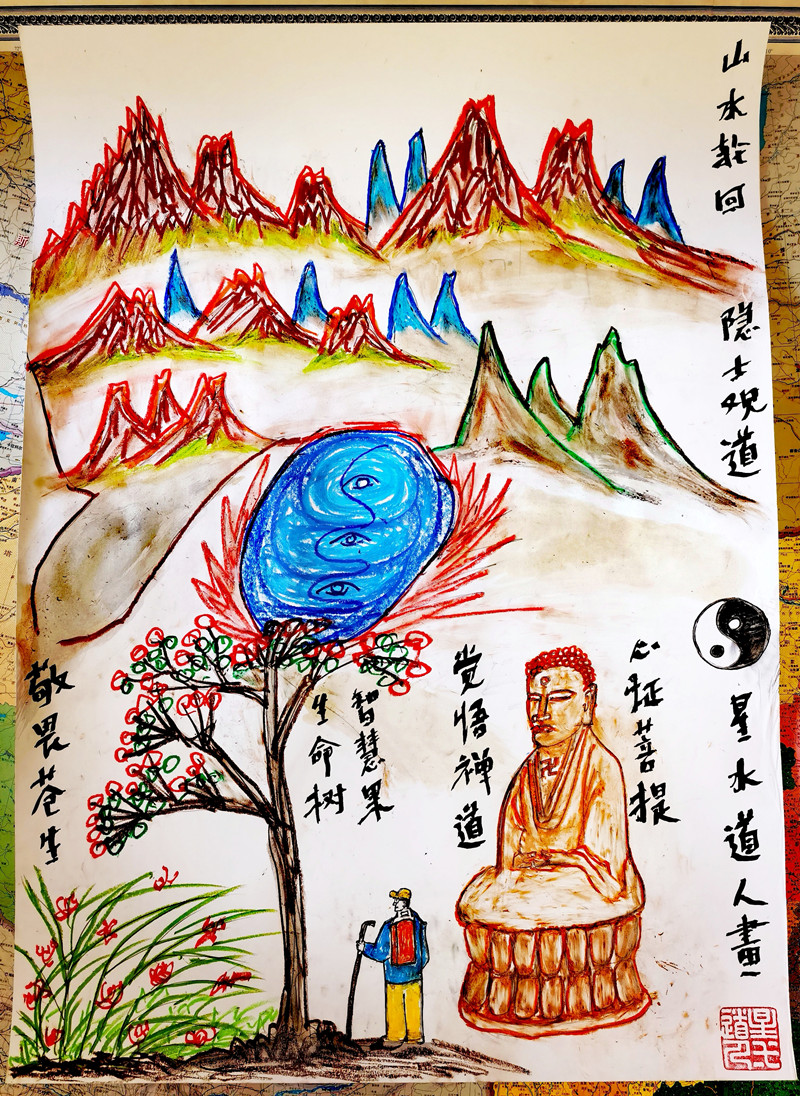 山水回
隐士观道
星水道人畫
心证菩提
觉悟禅道
智慧果
生命树
敬畏苍生
星水道人